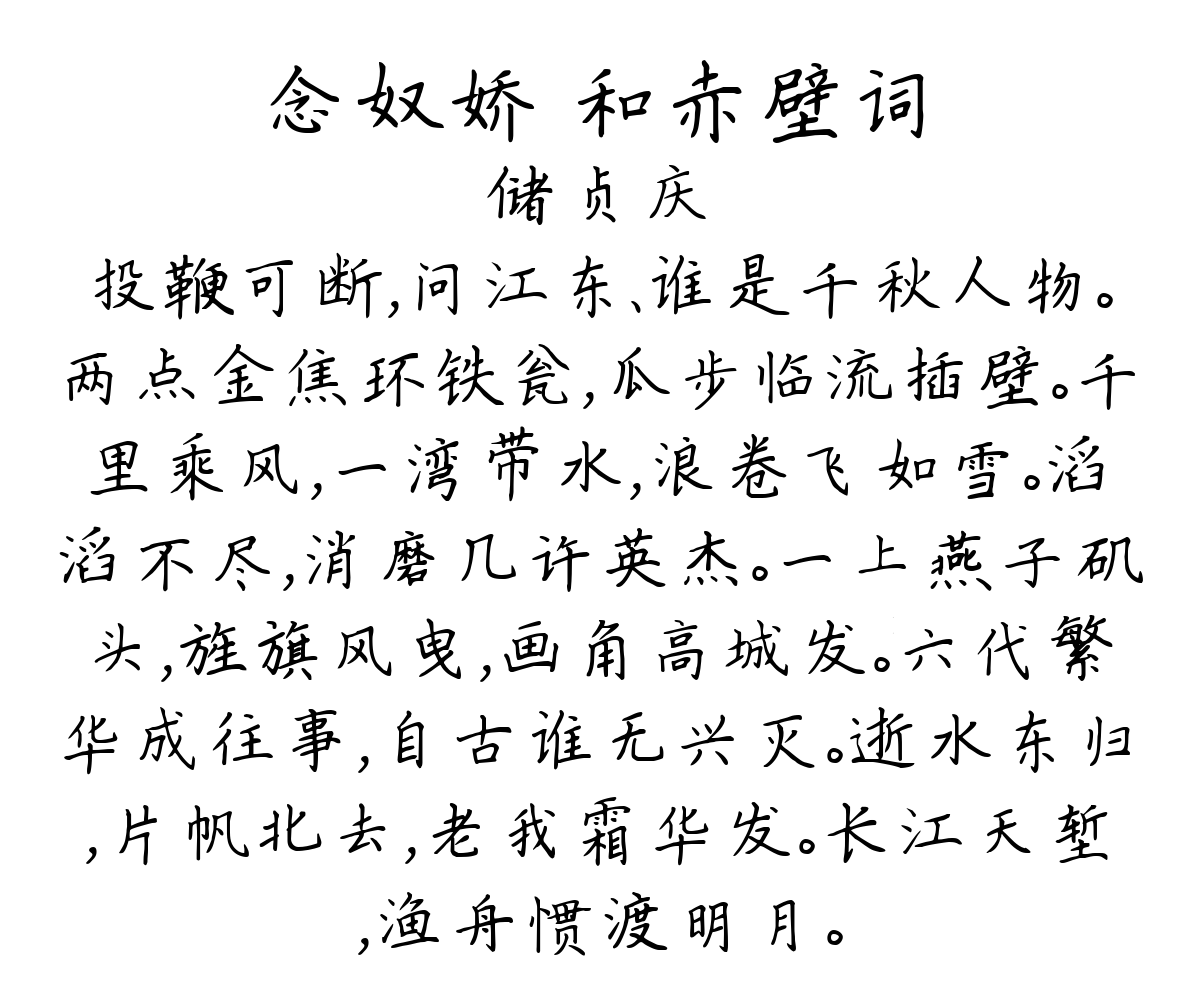 念奴娇 和赤壁词
储贞庆
投鞭可断,问江东、谁是千秋人物。
两点金焦环铁瓮,瓜步临流插壁。千
里乘风,一湾带水,浪卷飞如雪。滔
滔不尽,消磨几许英杰。一上燕子矶
头,旌旗风曳,画角高城发。六代繁
华成往事,自古谁无兴灭。逝水东归
,片帆北去,老我霜华发。长江天堑
,渔舟惯渡明月。